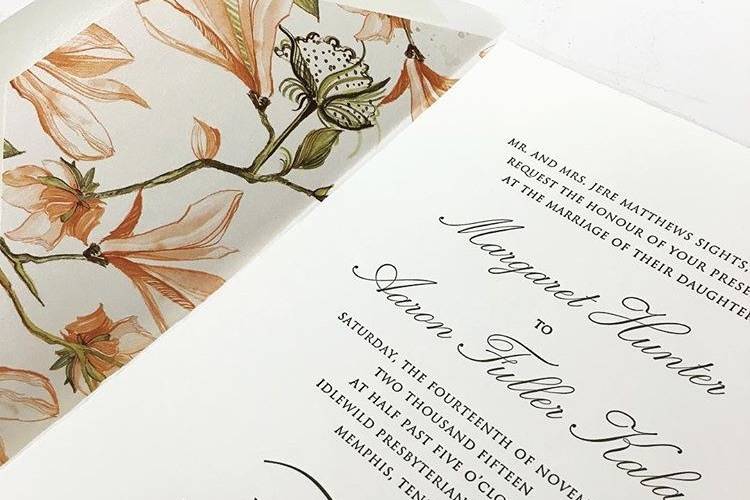 MR. AND MRS. JERE MATTHEWS SIGHTS,
REQUEST THE HONOUR OF YOUR PRESE
AT THE MARRIAGE OF THEIR DAUGHTER
Margaret Hunter
TO
Aaron Fuller Kala
SATURDAY, THE FOURTEENTH OF NOVEM
TWO THOUSAND FIFTEEN
AT HALF PAST FIVE O'CLO
IDLEWILD PRESBYTERIAN
MEMPHIS, TEN